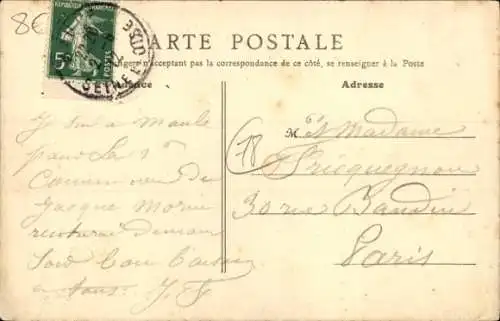 8€
RÉPUBLIQUE FRANÇAISE
5c
POSTES
SEINE
CARTE POSTALE
n'acceptant pas la correspondance de ce côté, se renseigner à la Poste
Adresse
Je suis a Maule
pour la 1e
Communion de
Jacque
retournerai demain
soir bon baiser
a tous. J. F.
78
M. et Madame
Fricquegnon
30 rue Baudin
Paris